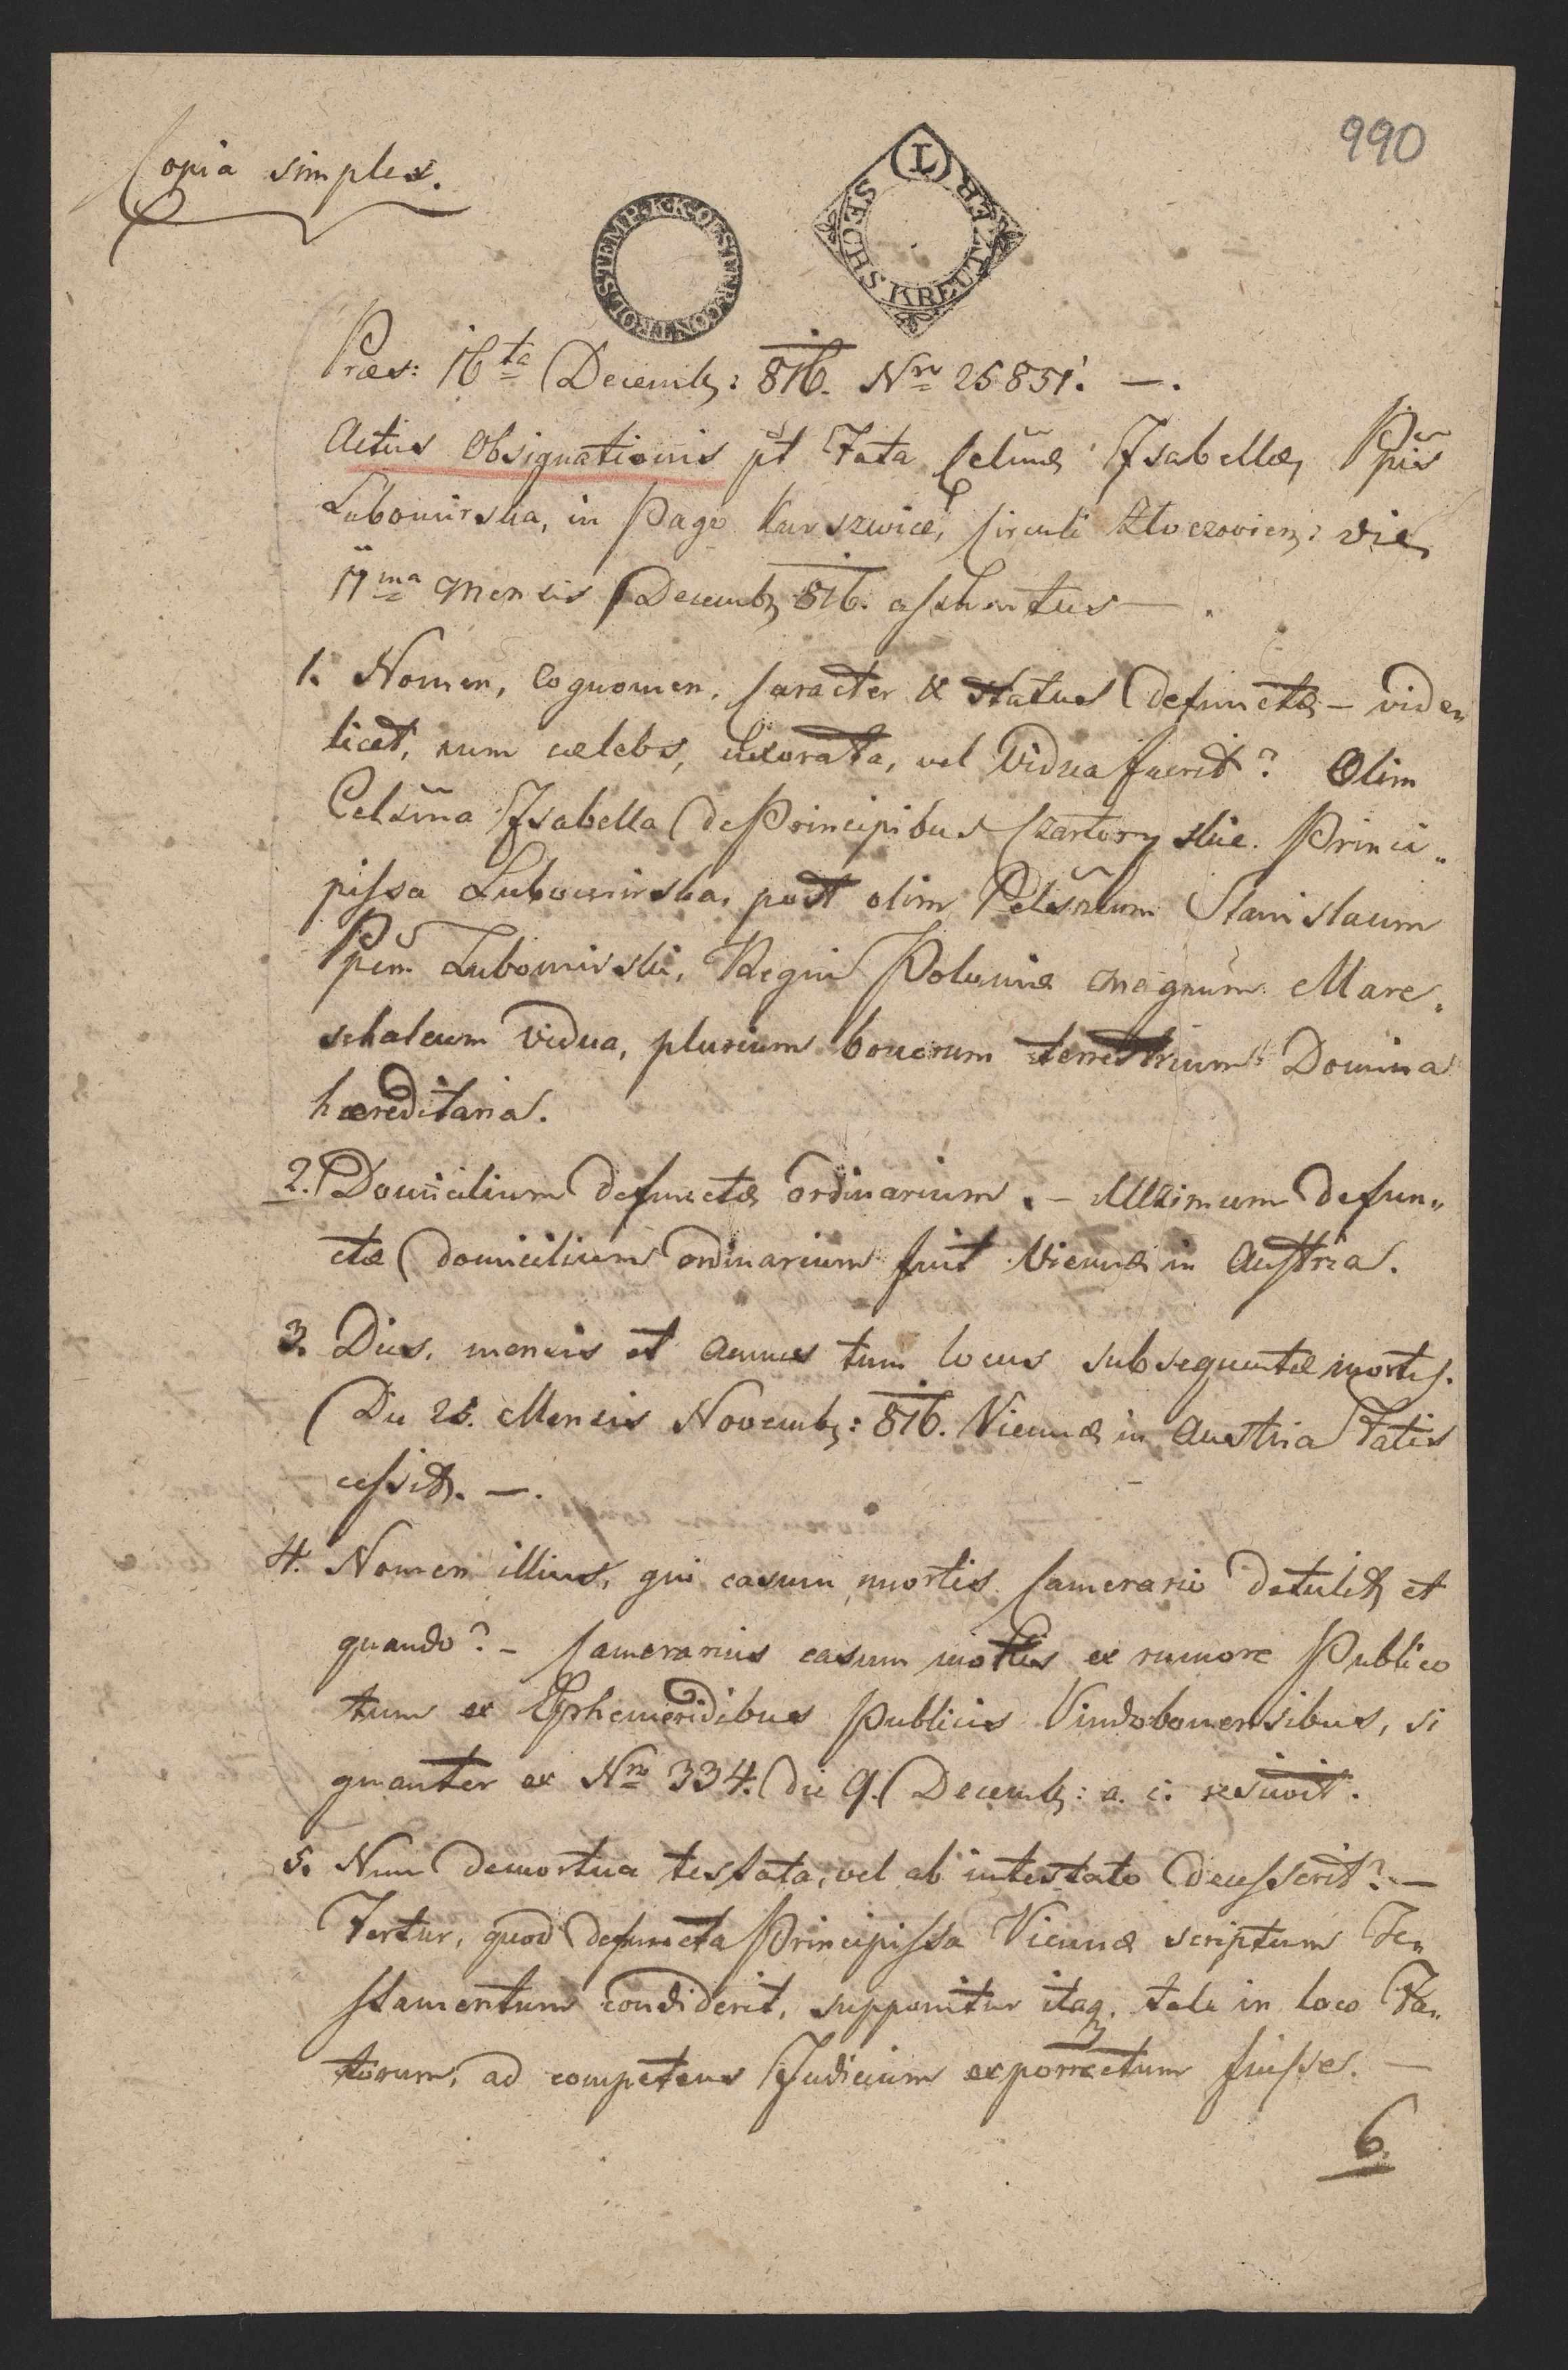 990
Copia simplex.
STEMP. K. K. OEST. VER. CONTROL
SECHS KREUTZER (L)
Præs: 16ta Decemb: 816. Nro 25851. —.
Actus Obsignationis pt Fata Celsmæ Isabellæ, Ppis
Lubomirska, in Pago Kurszwice, Circuli Zloczoviens: die
17ma Mensis Decemb 816.
1. Nomen, Cognomen, Caracter & status defunctæ — viden„
licet, num cælebs, uxorata, vel Vidua fuerit? Olim
Celsma Isabella de Principibus Czartoryskie. Princi„
pissa Lubomirska, post olim Celsmum Stanislaum
Ppem Lubomirski, Regni Poloniæ Magnum Mare„
schalcum Vidua, plurium bonorum terrestrium Domina
hæreditaria.
2. Domicilium defunctæ ordinarium. — Ultimum defun„
ctæ domicilium ordinarium fuit Viennæ in Austria.
3. Dies, mensis et annus tum locus subsequentæ mortis.
Die 25. Mensis Novemb: 816. Viennæ in Austria Fatis
cessit. —.
4. Nomen illius, qui casum mortis Camerario detulit et
quando? — Camerarius casum mortis ex rumore Publico
tum ex Ephemeridibus Publicis Vindobonensibus, si
gnanter ex Nro 334. die 9. Decemb: a. c. rescivit.
5. Num demortua testata, vel ab intestato decesserit? —
Fertur, quod defuncta Principissa Viennæ scriptum Te„
stamentum condiderit, supponitur itaq. tale in loco Fa„
torum, ad competens Judicium exporrectum fuisse. —
6.